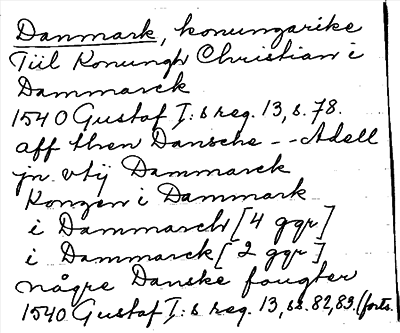 Danmark, konungarike
Till Konungh Christian i
Dammarck
1540 Gustaf I:s reg. 13, s. 78.
aff then Dansche -- Adell
jn vtij Dammarck
Kongen i Dammark
i Dammarch [4 ggr]
i Dammarck [2 ggr]
någre Danske fougter
1540 Gustaf I:s reg. 13, ss. 82, 83. (forts.